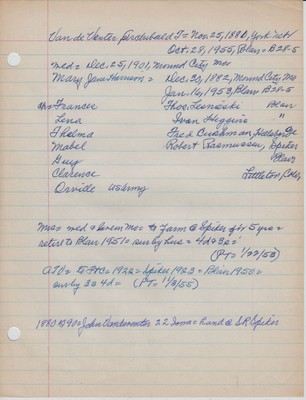 Van de Venter Archabald T = Nov. 25, 1880, York
Oct. 28, 1955, Blair = B28-5
med = Dec. 25, 1901, Mound City, Mo
Mary Jane Harrison = Dec. 30, 1882, Mound City Mo
Jan. 16, 1953, Blair B28-5
Frances Thos. Blair
Lena Ivan Higgins "
Thelma Fred Cushman,
Mabel Robert Rasmussen, Spiker
Guy Blair
Clarence Littleton, Colo,
Orvide US Army
Mrs = med & liven Mo = to Farm @ Spiker
retir to Blair 1951 = surby hus = 4d & 3s =
(PT = 1/22/53)
1922 = Spiker 1923 = Blair 1950 =
surby 3s 4d = (PT = 11/3/55)
1880 = John Vandeventer 22 Iowa = hand @ S.R. Spiker